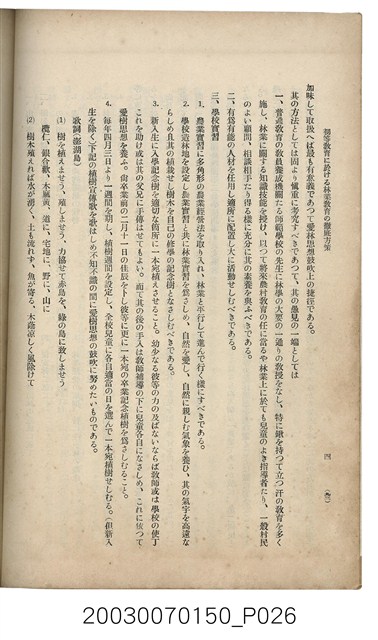 初等教育に於ける林業教育の徹底方策
四
加味して取扱へば最も有意義であつて愛林思想鼓吹上の捷徑である。
其の方法としては固より愼重に考究すべきであつて、其の愚見の一端としては
一、普通教育の教員養成機關たる師範學校の先生に林學の大要の一通りの教授をなし、特に鍬を持つて立つ汗の教育を多く
施し、林業に關する知識技能を授け、以つて將來農村教育の任に當るや林業上に於ても兒童のよき指導者たり、一般村民
のよい顧問、相談相手たり得る樣に充分に其の素養を與ふべきである。
二、有爲有能の人材を任用し適所に配置し大に活動せしむべきである。
三、學校實習
1、農業實習に多角形の農業經營法を取り入れ、林業と平行して進んで行く樣にすべきである。
2、學校造林地を設定し農業實習と共に林業實習を爲さしめ、自然を愛し、自然に親しむ氣象を養ひ、其の氣宇を高遠な
らしめ且其の植栽せし樹木を自己の修學の記念樹となさしむべきである。
3、新入學生に入學記念樹を適切な箇所に一本宛植えさせること。幼少なる彼等の力の及ばないならば教師或は學校の使丁
これを助け或は其の父兄に手傳はせてもよい。而て其の後の手入は教師補導の下に兒童各自になさしめ、これに依つて
愛樹思想を養ふ。尙卒業前の二月十一日の佳辰をトし彼等に更に一本宛の卒業記念植樹を爲さしむること。
4、每年四月三日より一週間を期し、植樹週間を設定し、全校兒童に各自適當の日を選んで一本宛植樹せしむる。(但新入
生を除く)下記の植樹宣傳歌を歌はしめ不知不識の間に愛樹思想の鼓吹に努めたいものである。
歌詞(澎湖島)
(1) 樹を植えませう、殖しませう、力協せて赤島を、綠の島に致しませう
欖仁、銀合歡、木麻黃、道に、宅地に、野に、山に
(2) 樹木殖えれば水が湧く、土も流れず、魚が寄る、木蔭涼しく風除けて
20030070150_P026